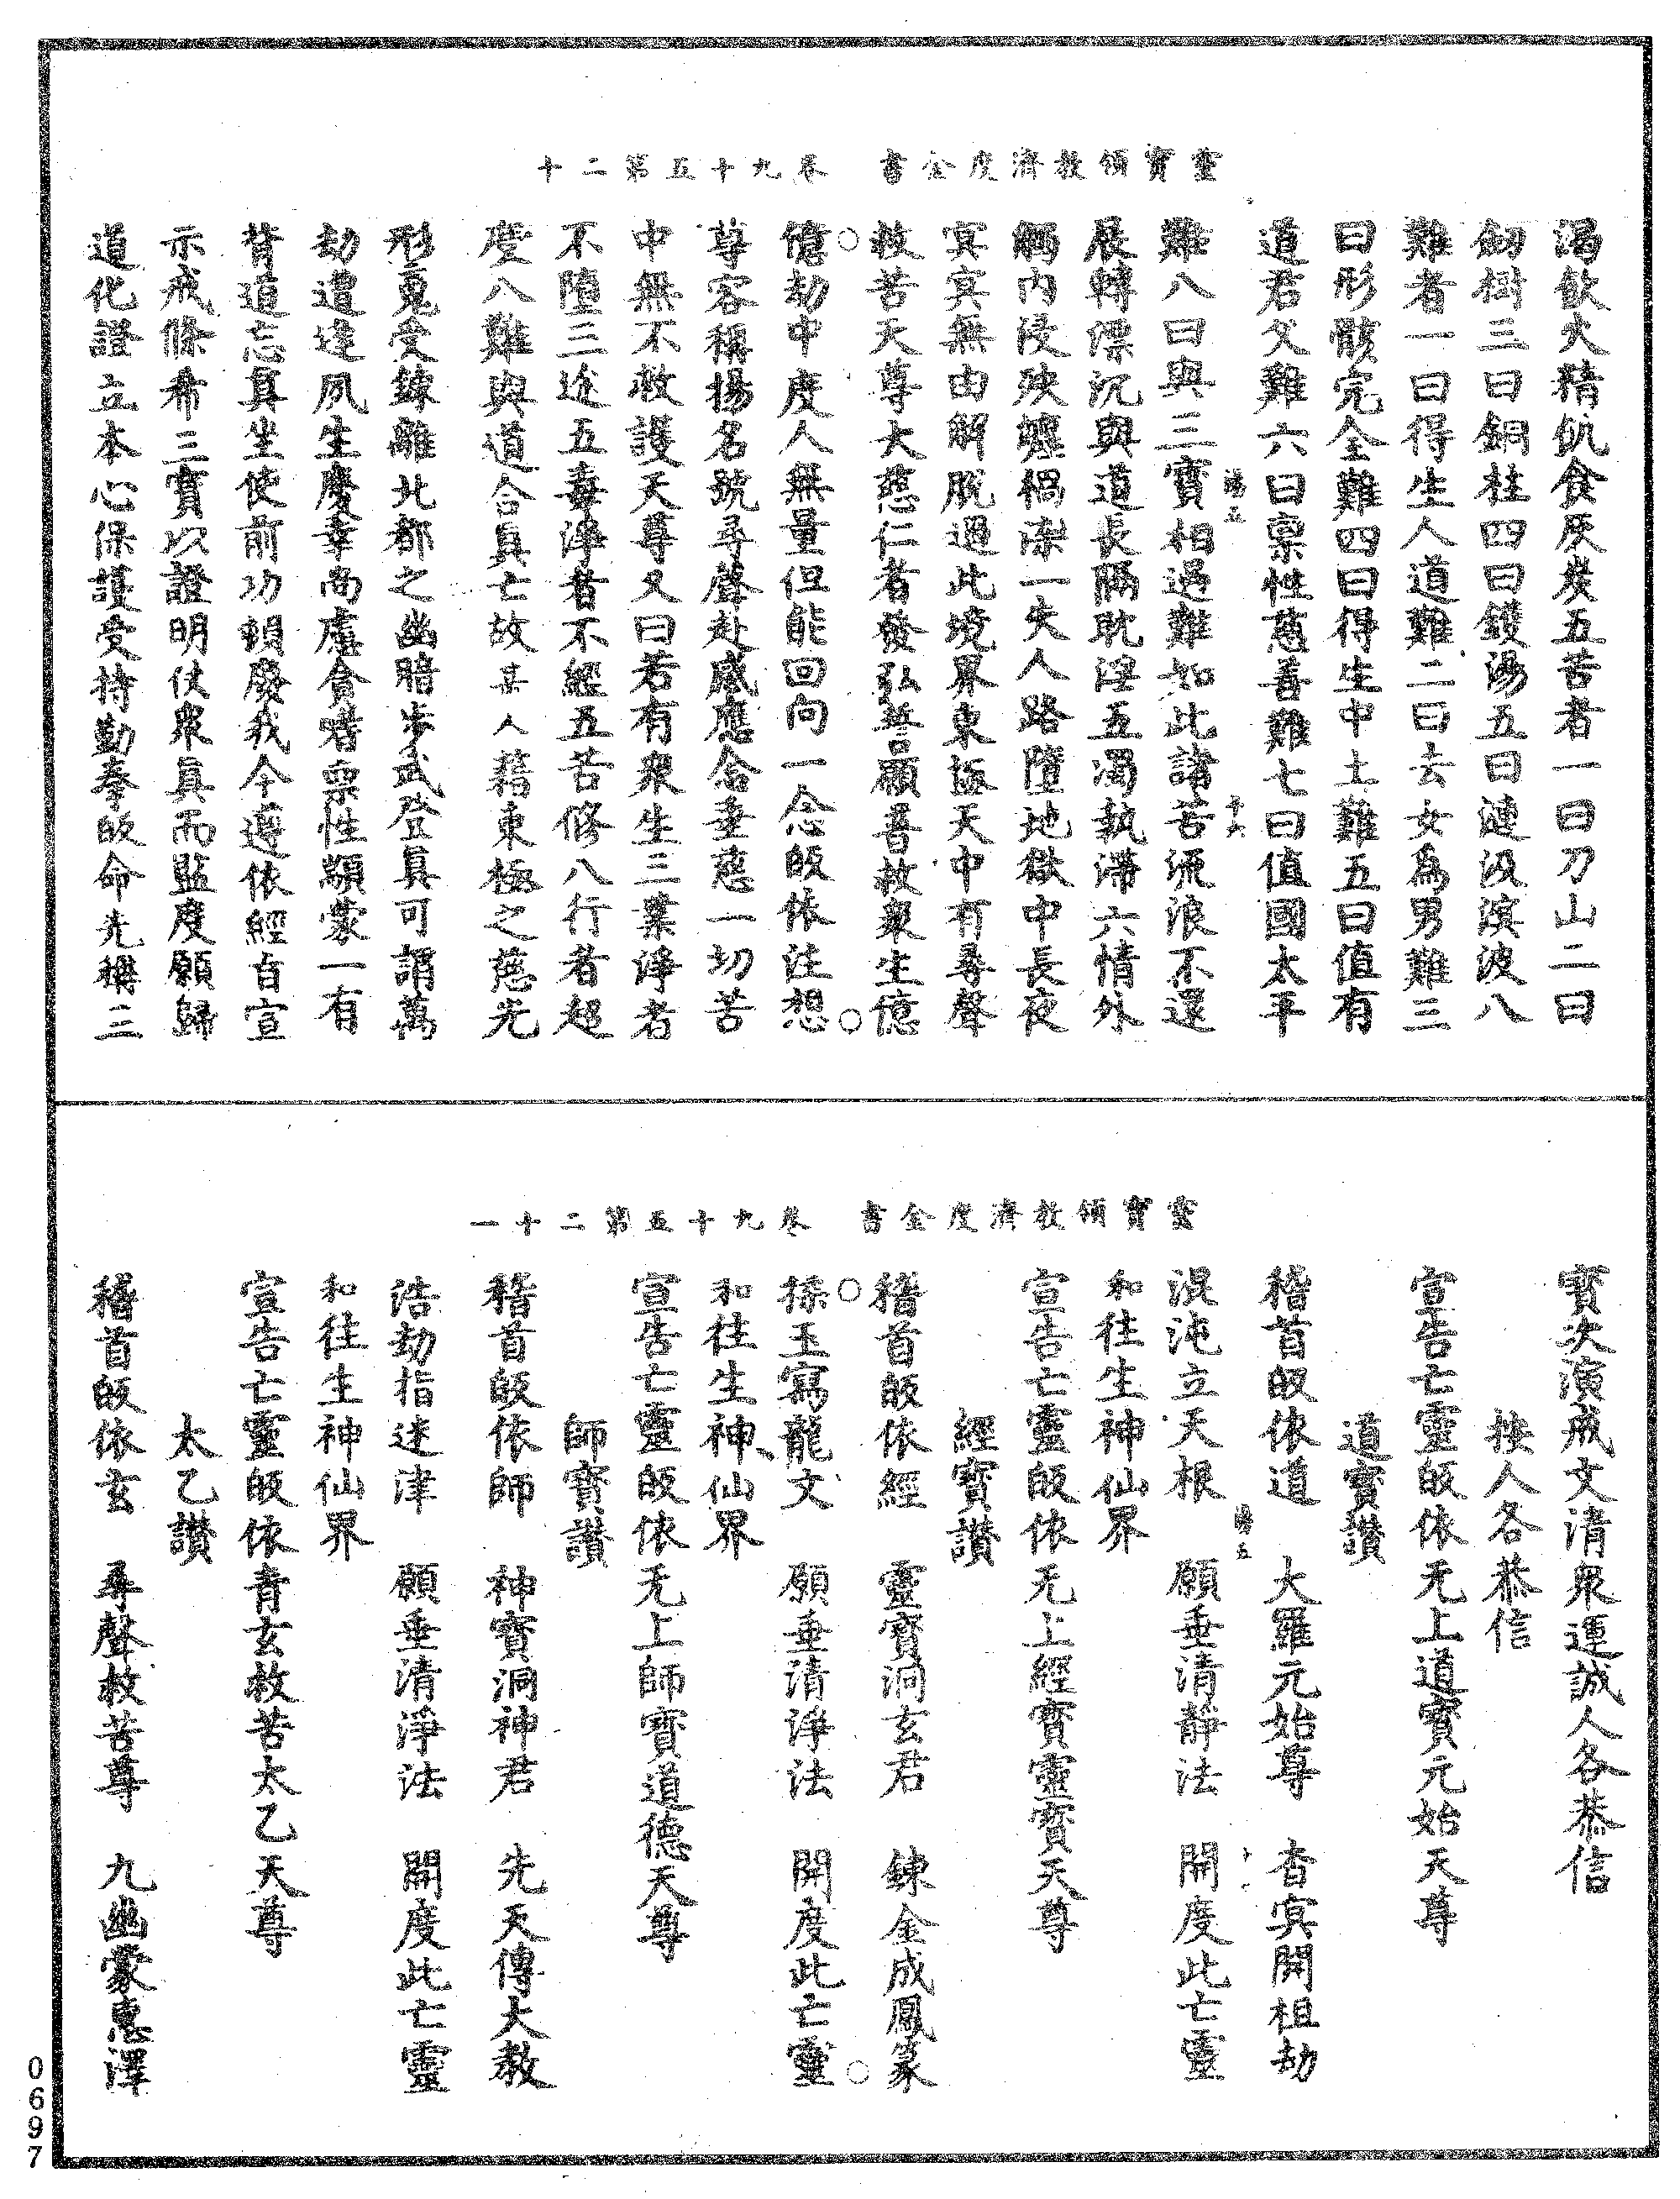 靈寶領教濟度金書　卷九十五第二十
渴飲火精飢食灰炭五苦者一曰刀山二曰
劒樹三曰銅柱四曰鑊湯五曰漣汲溟波八
難者一曰得生人道難二曰去女為男難三
曰形骸完全難四曰得生中土難五曰值有
道君父難六曰稟性慈善難七曰值國太平
難八曰與三寶相遇難如此諸苦流浪不還
展轉漂沉與道長隔耽淫五濁執滯六情外
觸內侵殃纏禍深一失人路墮地獄中長夜
冥冥無由解脫過此境界東極天中有尋聲
救苦天尊大慈仁者發弘誓願普救衆生億
億劫中度人無量但能回向一念皈依注想
尊容稱揚名號尋聲赴感應念垂慈一切苦
中無不救護天尊又曰若有衆生三業淨者
不墮三途五毒淨者不經五苦修八行者超
度八難與道合真亡故某人藉東極之慈光
形䰟受鍊離北都之幽暗步武登真可謂萬
劫遭逢夙生慶幸尚慮貪嗜稟性顓蒙一有
背道忘真坐使前功頓廢我今遵依經旨宣
示戒條希三寶以證明仗衆真而監度願歸
道化證立本心保護受持勤奉皈命先稱三
靈寶領教濟度金書　卷九十五第二十一
寶次演戒文清衆運誠人各恭信
按人各恭信
宣告亡靈皈依无上道寶元始天尊
道寶讚
稽首皈依道　大羅元始尊　杳冥開祖劫
混沌立天根　願垂清靜法　開度此亡靈
和往生神仙界
宣告亡靈皈依无上經寶靈寶天尊
經寶讚
稽首皈依經　靈寶洞玄君　鍊金成鳳篆
揉玉寫龍文　願垂清淨法　開度此亡靈
和往生神仙界
宣告亡靈皈依无上師寶道德天尊
師寶讚
稽首皈依師　神寶洞神君　先天傳大教
浩劫指迷津　願垂清淨法　開度此亡靈
和往生神仙界
宣告亡靈皈依青玄救苦太乙天尊
太乙讚
稽首皈依玄　尋聲救苦尊　九幽蒙惠澤
0697